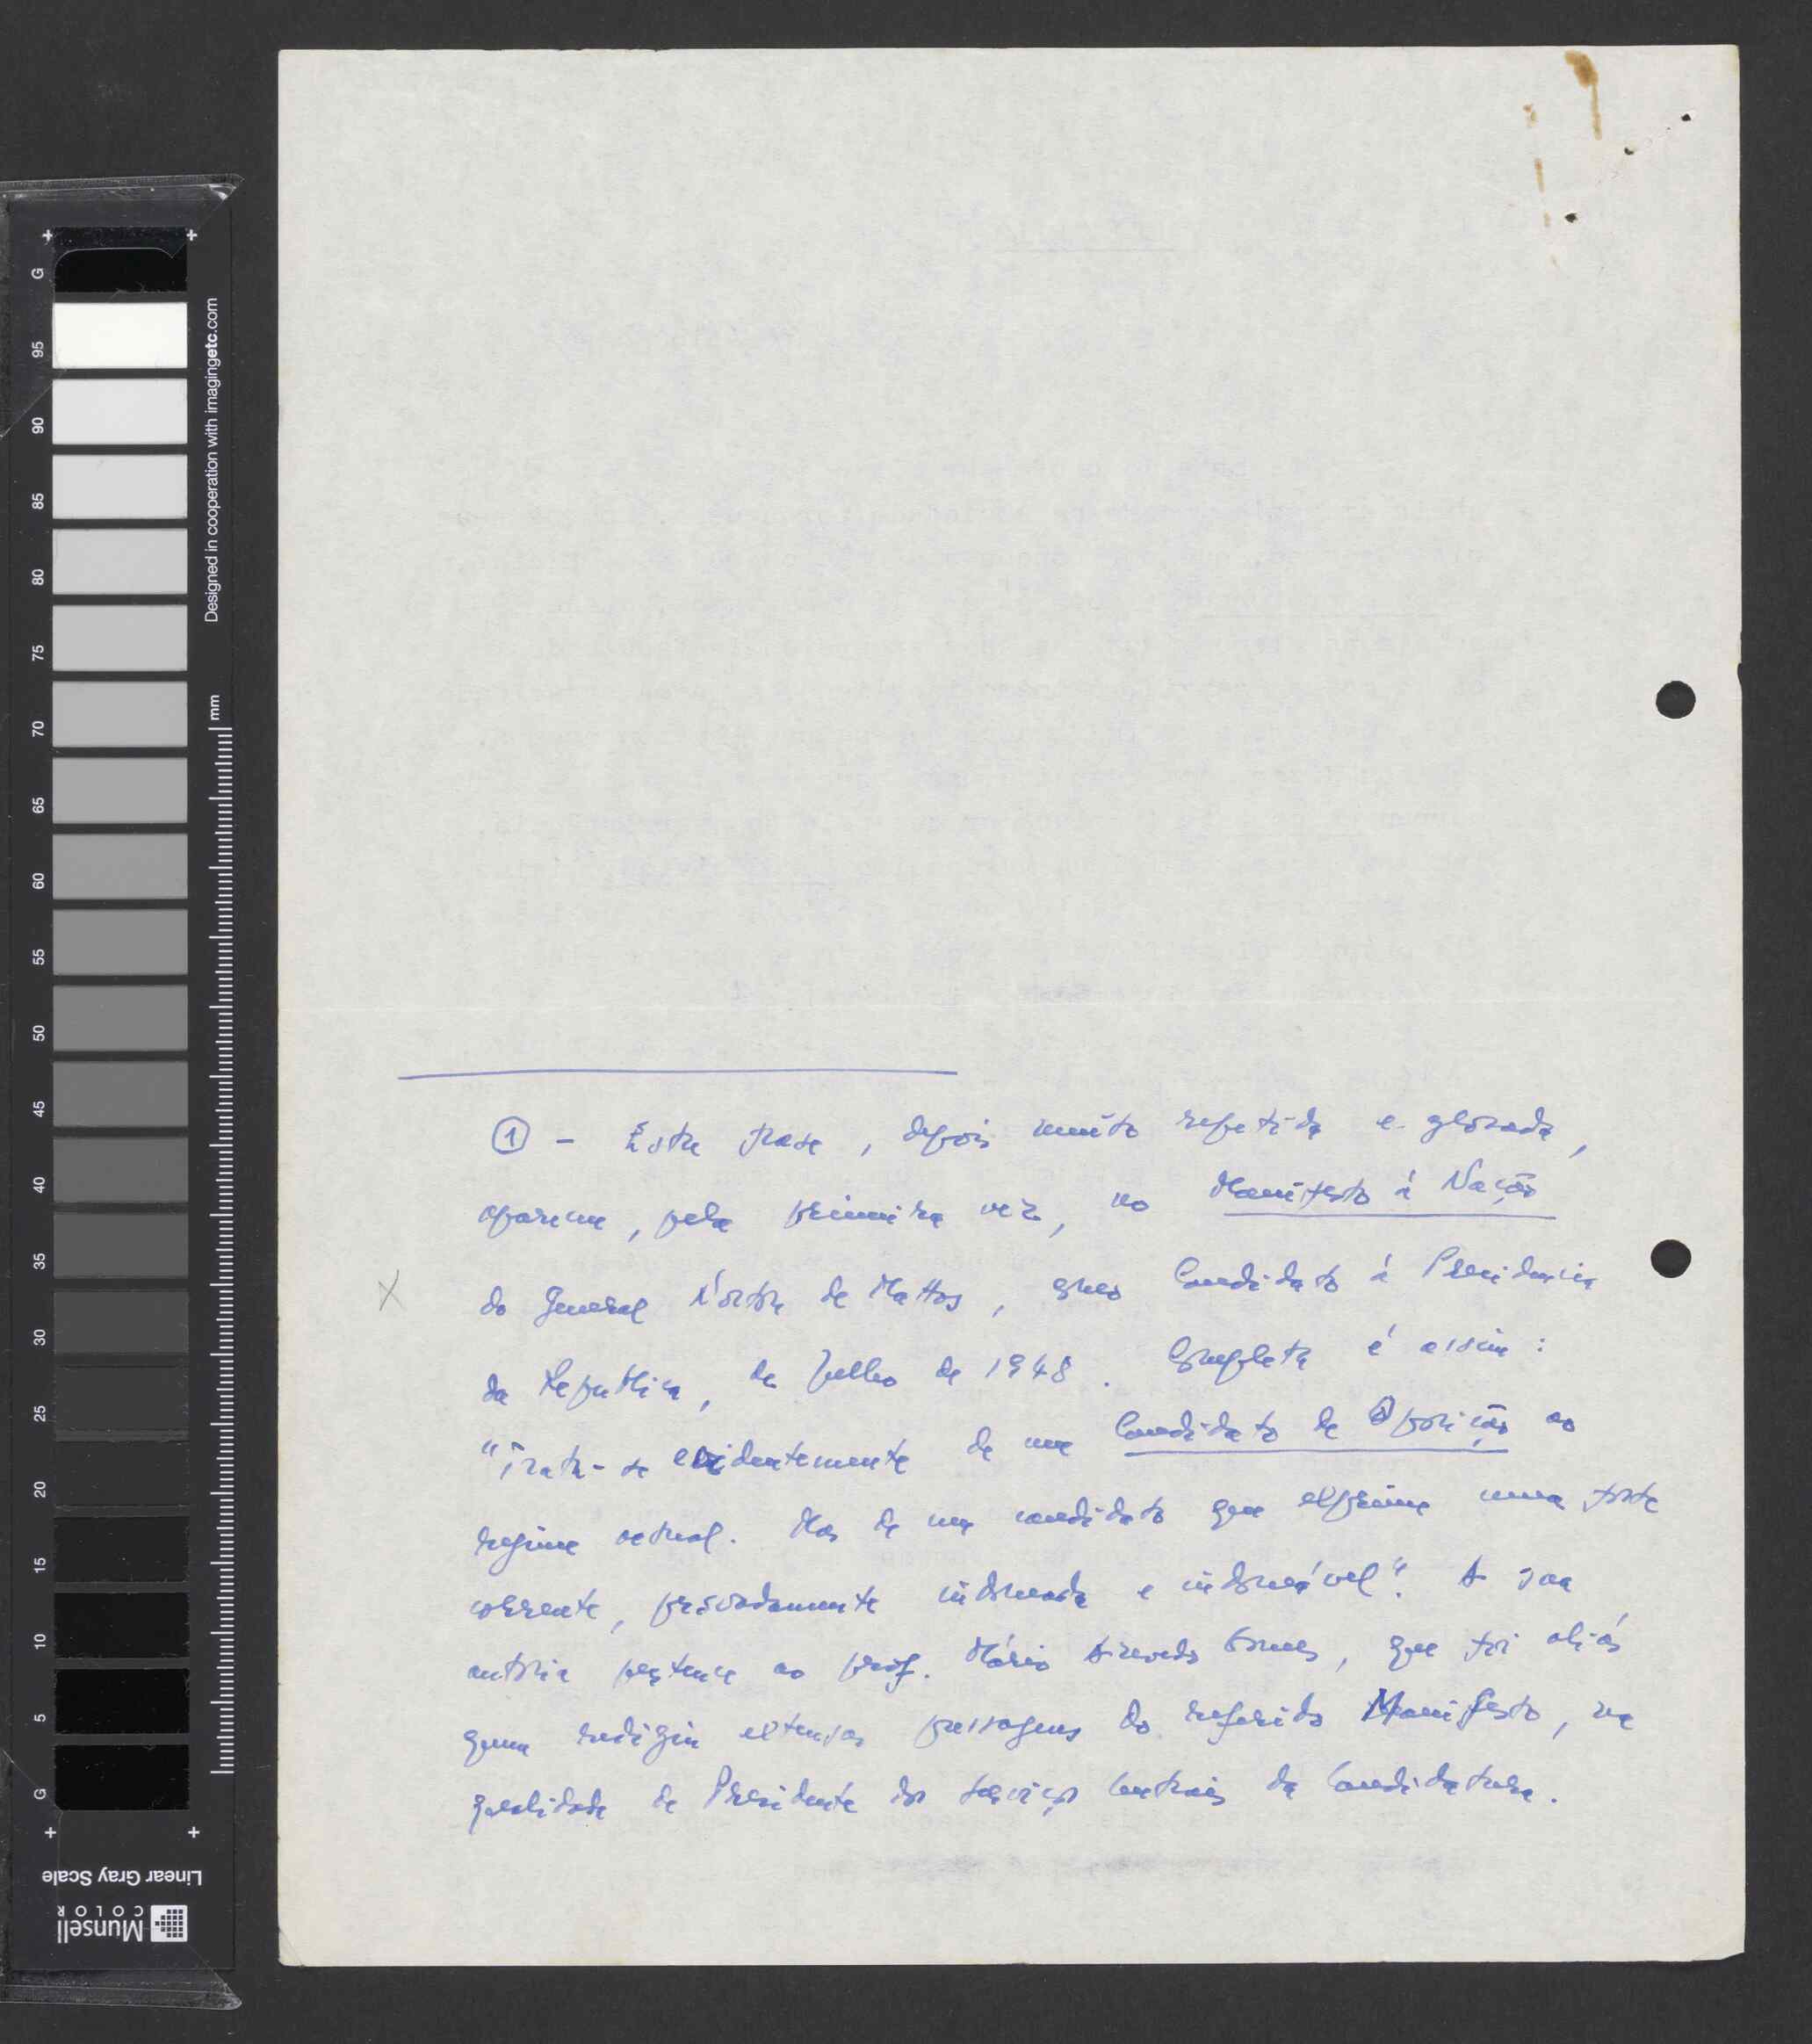 ① - Esta frase, depois muito repetida e glosada,
aparece, pela primeira vez, no Manifesto à Nação
X do General Norton de Mattos, como Candidato à Presidência
da República, de Julho de 1948. Completa é assim:
"Trata-se evidentemente de um Candidato de Oposição ao
regime actual. Mas de um candidato que exprime uma forte
corrente, provadamente indomada e indomável". A sua
autoria pertence ao prof. Mário Azevedo Gomes, que foi aliás
quem redigiu extensas passagens do referido Manifesto, na
qualidade de Presidente dos Serviços Centrais da Candidatura.
Designed in cooperation with imagingetc.com
mm
G 95 90 85 80 75 70 65 60 55 50 45 40 35 30 25 20 15 10 5 G
Linear Gray Scale
Munsell
COLOR